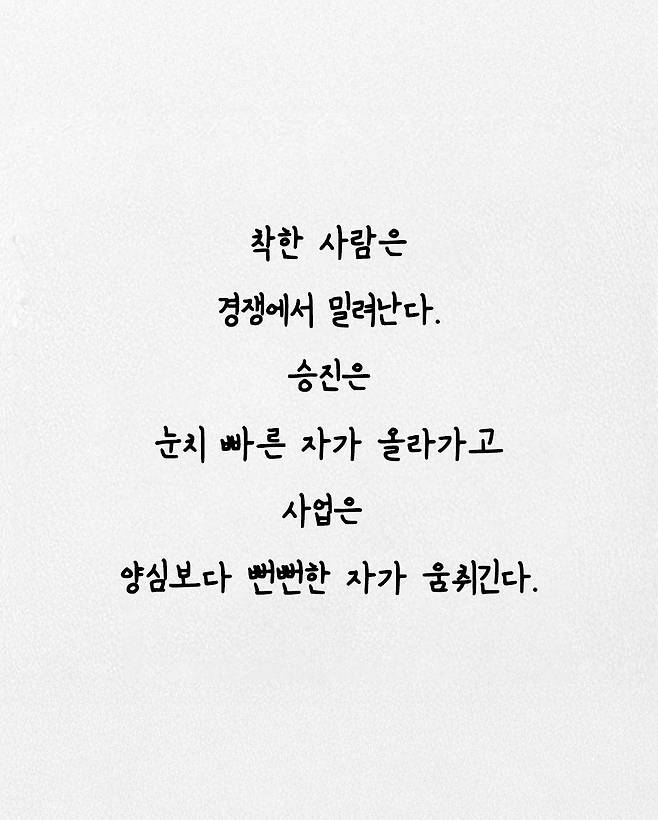 착한 사람은
경쟁에서 밀려난다.
승진은
눈치 빠른 자가 올라가고
사업은
양심보다 뻔뻔한 자가 움취긴다.